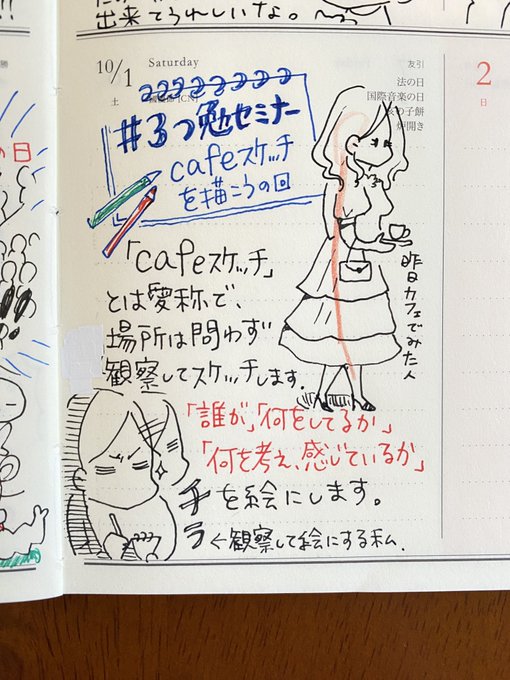 出来てうれしいな。
10/1 Saturday
土
友引
法の日
国際音楽の日
炉開き
2
日
#3つ勉セミナー
cafeスケッチ
を描こうの回
昨日カフェでみた人
「cafeスケッチ」
とは愛称で、
場所は問わず
観察してスケッチします。
「誰が」「何をしてるか」
「何を考え、感じているか」
を絵にします。
チラ
←観察して絵にする私.